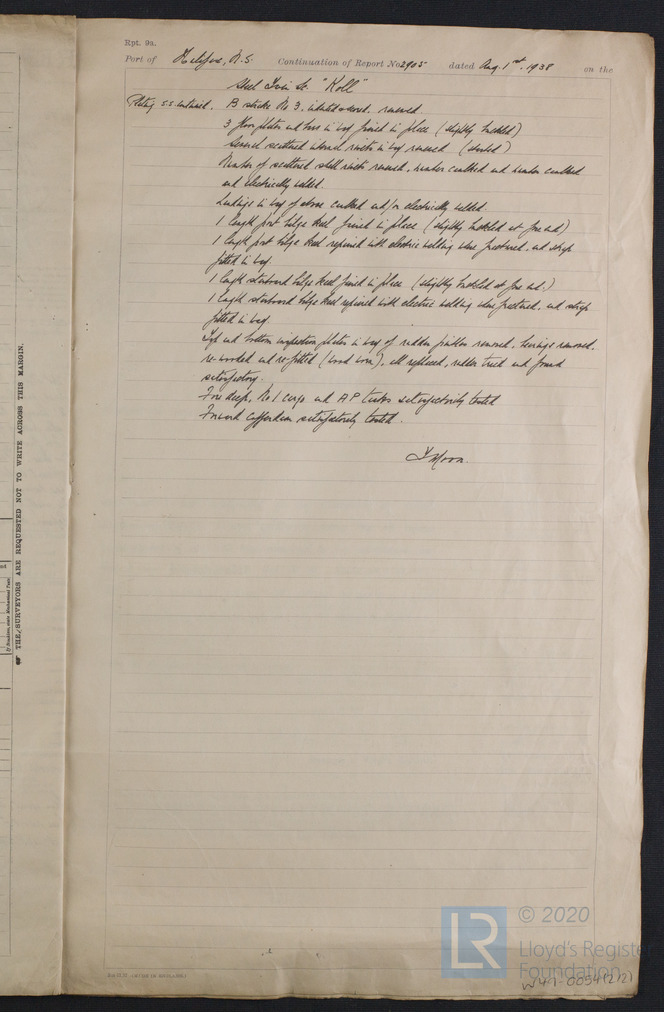 Rpt. 9a.
Port of Halifax, N.S. Continuation of Report No 2905 dated Aug. 1st. 1938 on the
Steel Twin Sc. "Koll"
Plating S.S. continued. B strake No 3, removed
3 floor plates and bars in way faired in place (slightly buckled)
Several scattered internal rivets in way renewed (slacked)
Number of scattered shell rivets renewed, number caulked and number caulked
and electrically welded.
Landings in way of above caulked and/or electrically welded.
1 length port bilge keel faired in place (slightly buckled at fore end)
1 length port bilge keel repaired with electric welding where fractured, and strap
fitted in way.
1 length starboard bilge keel faired in place (slightly buckled at fore end.)
1 length starboard bilge keel repaired with electric welding where fractured, and strap
fitted in way.
Top and bottom inspection plates in way of rudder pintles removed, bearings removed,
re-wooded and re-fitted (wood worn), all replaced, rudder tried and found
satisfactory.
Fore deep, No 1 cargo and A P tanks satisfactorily tested
Forward cofferdam satisfactorily tested.
J Moon.
THE SURVEYORS ARE REQUESTED NOT TO WRITE ACROSS THIS MARGIN.
LR
© 2020
Lloyd's Register
Foundation
W47-0054(2/2)